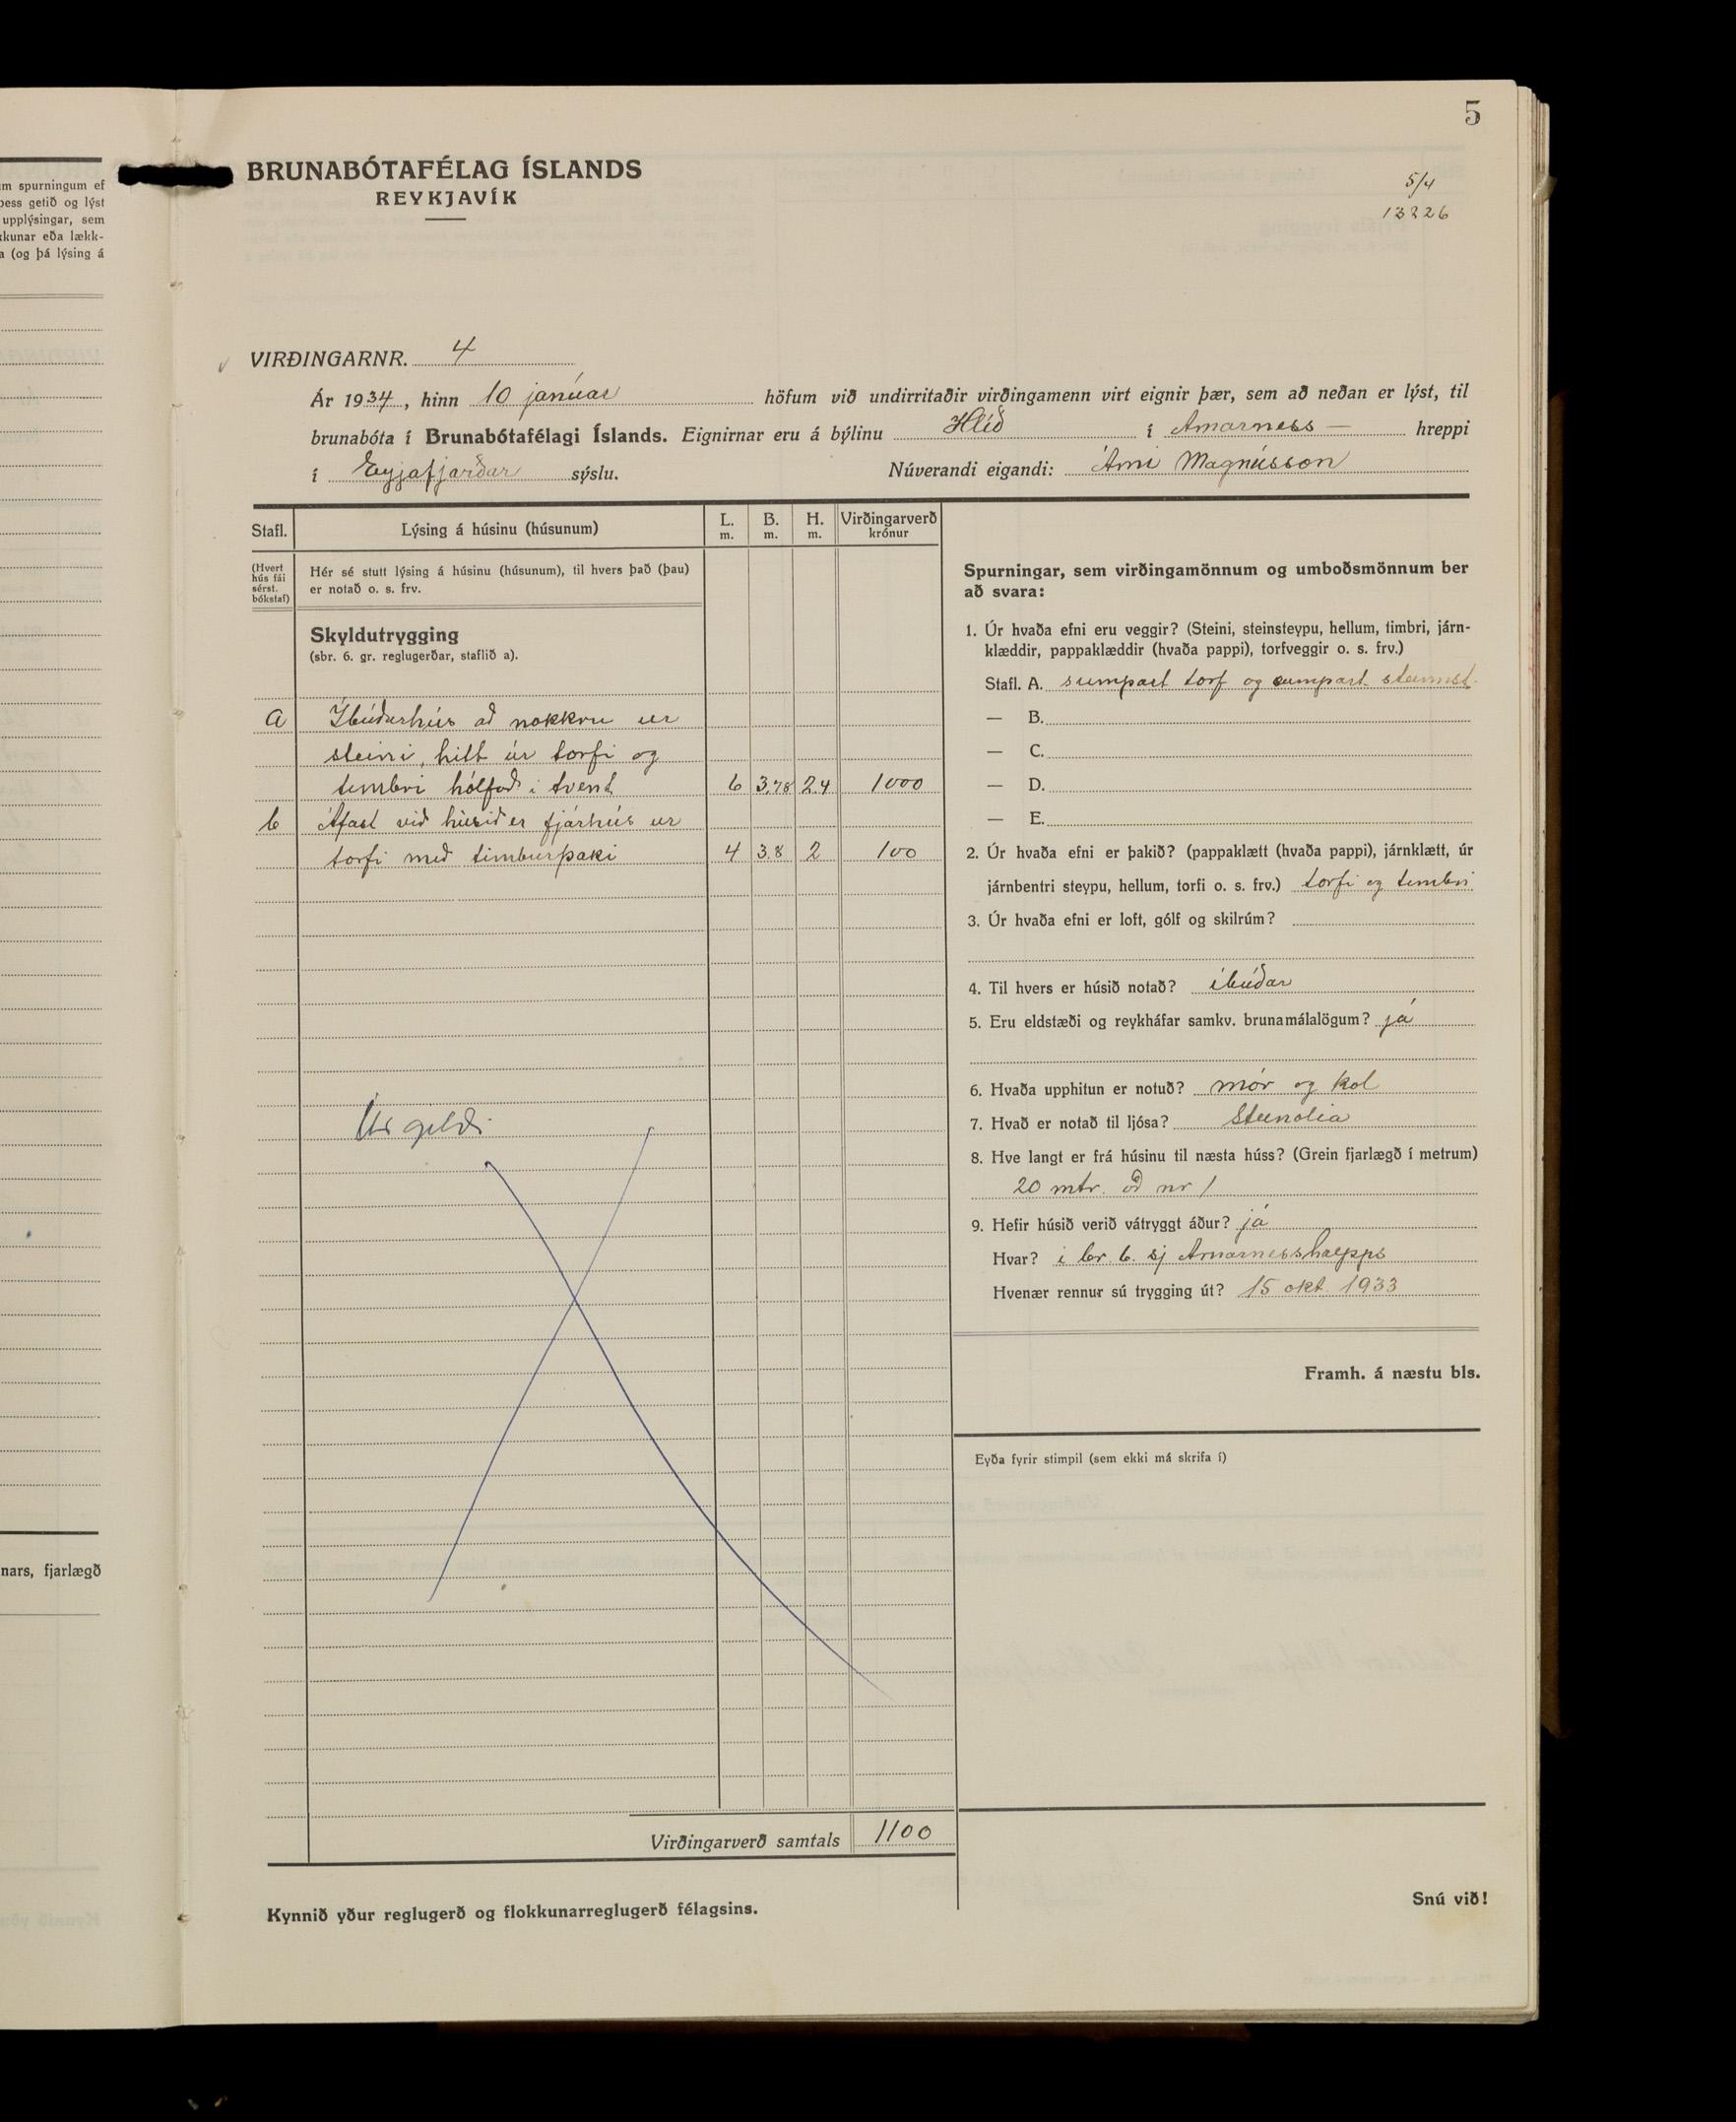 5
BRUNABÓTAFÉLAG ÍSLANDS
REYKJAVÍK
5/4
13226
VIRÐINGARNR. 4
Ár 1934, hinn 10 janúar höfum við undirritaðir virðingamenn virt eignir þær, sem að neðan er lýst, til
brunabóta í Brunabótafélagi Íslands. Eignirnar eru á býlinu Hlíð í Arnarness- hreppi
í Eyjafjarðar sýslu. Núverandi eigandi: Árni Magnússon
Stafl. Lýsing á húsinu (húsunum) L. m. B. m. H. m. Virðingarverð krónur
(Hvert hús fái sérst. bókstaf)
Hér sé stutt lýsing á húsinu (húsunum), til hvers það (þau)
er notað o. s. frv.
Skyldutrygging
(sbr. 6. gr. reglugerðar, staflið a).
a Íbúðarhús að nokkru úr
steini, hitt úr torfi og
timbri hólfað í tvent 6 3.78 2.4 1000
b Áfast við húsið er fjárhús úr
torfi með timburþaki 4 3.8 2 100
Úr gildi
Virðingarverð samtals 1100
Kynnið yður reglugerð og flokkunarreglugerð félagsins.
Spurningar, sem virðingamönnum og umboðsmönnum ber
að svara:
1. Úr hvaða efni eru veggir? (Steini, steinsteypu, hellum, timbri, járn-
klæddir, pappaklæddir (hvaða pappi), torfveggir o. s. frv.)
Stafl. A. sumpart torf og sumpart steinst.
— B.
— C.
— D.
— E.
2. Úr hvaða efni er þakið? (pappaklætt (hvaða pappi), járnklætt, úr
járnbentri steypu, hellum, torfi o. s. frv.) torfi og timbri
3. Úr hvaða efni er loft, gólf og skilrúm?
4. Til hvers er húsið notað? íbúðar
5. Eru eldstæði og reykháfar samkv. brunamálalögum? já
6. Hvaða upphitun er notuð? mór og kol
7. Hvað er notað til ljósa? Steinolia
8. Hve langt er frá húsinu til næsta húss? (Grein fjarlægð í metrum)
20 mtr. að nr 1
9. Hefir húsið verið vátryggt áður? já
Hvar? í br. b. sj Arnarnesshrepps
Hvenær rennur sú trygging út? 15 okt. 1933
Framh. á næstu bls.
Eyða fyrir stimpil (sem ekki má skrifa í)
Snú við!
um spurningum ef
þess getið og lýst
upplýsingar, sem
kkunar eða lækk-
a (og þá lýsing á
nars, fjarlægð